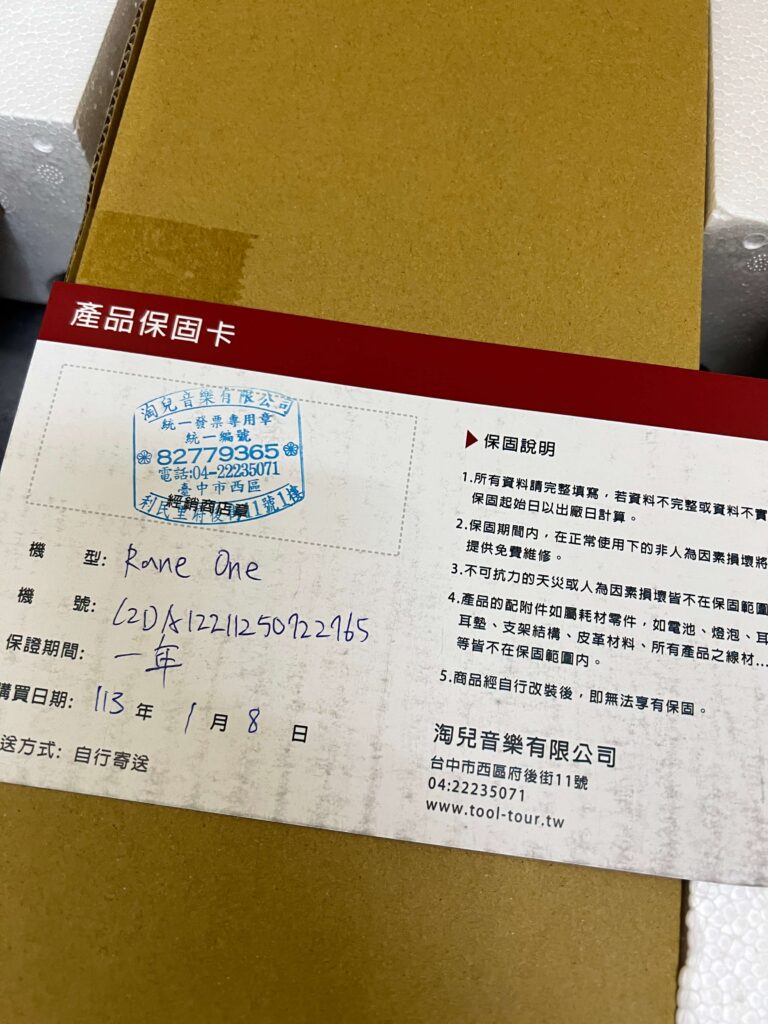 產品保固卡
淘兒音樂有限公司
統一發票專用章
統一編號
82779365
電話:04-22235071
臺中市西區
利民里府後街11號1樓
經銷商店章
機 型: Rane One
機 號:
保證期間: 一年
購買日期: 113 年 1 月 8 日
送方式: 自行寄送
保固說明
1.所有資料請完整填寫,若資料不完整或資料不實
保固起始日以出廠日計算。
2.保固期間內,在正常使用下的非人為因素損壞將
提供免費維修。
3.不可抗力的天災或人為因素損壞皆不在保固範圍
4.產品的配附件如屬耗材零件,如電池、燈泡、耳
耳墊、支架結構、皮革材料、所有產品之線材...
等皆不在保固範圍內。
5.商品經自行改裝後,即無法享有保固。
淘兒音樂有限公司
台中市西區府後街11號
04:22235071
www.tool-tour.tw